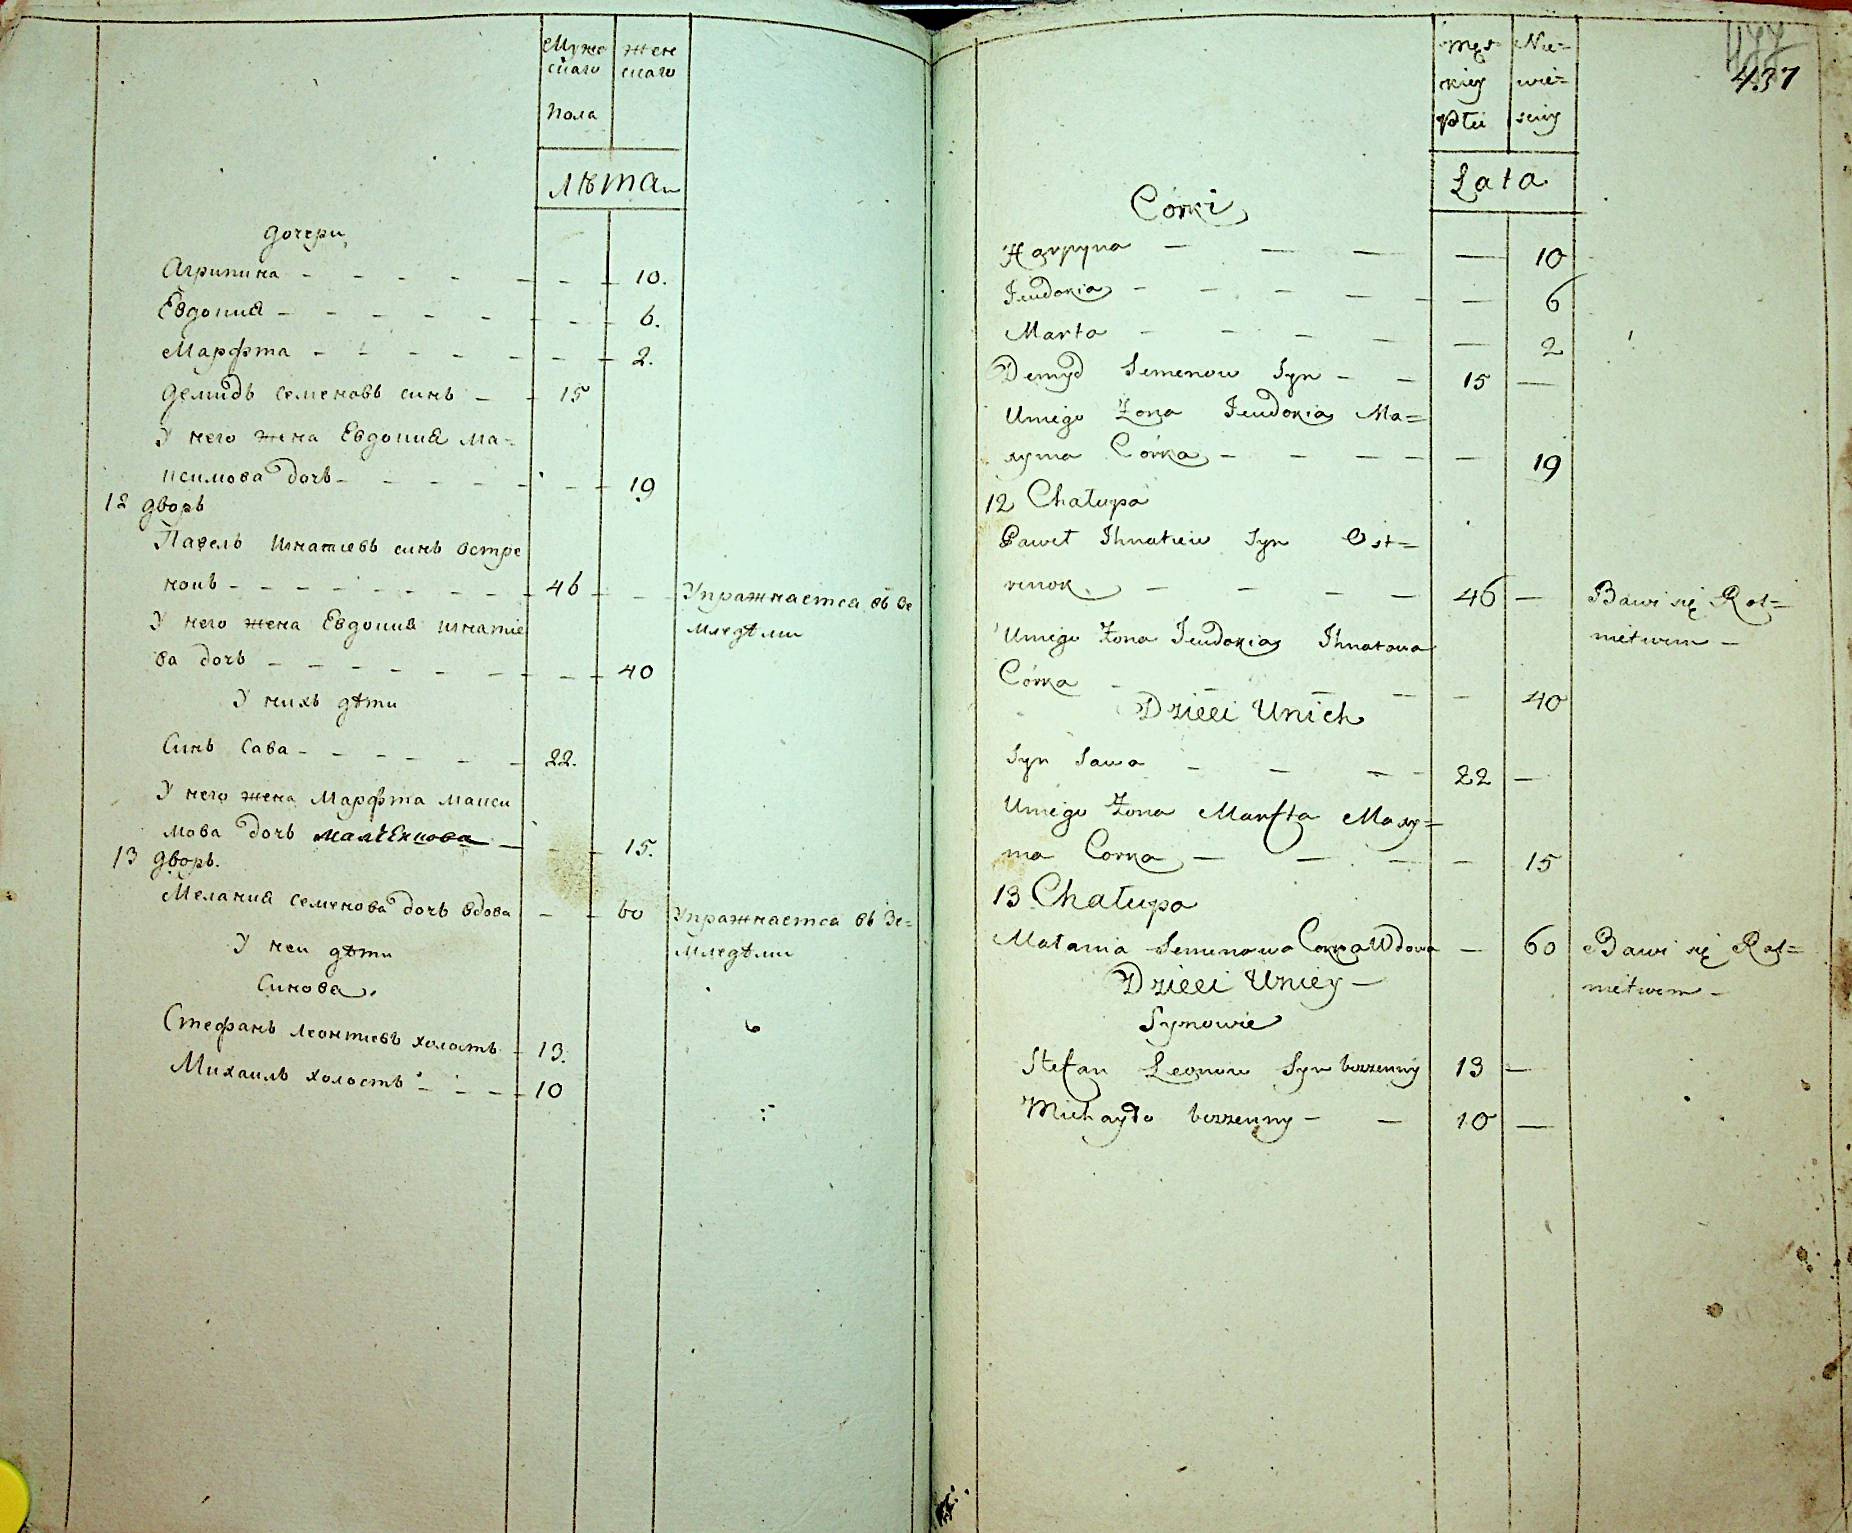 Мужс
скаго
Пола
Жен
скаго
лѣта
дочери
Агрипина - - - - - - 10.
Евдокиа - - - - - - 6.
Марфта - - - - - - 2.
Демидъ Семеновъ синъ - - 15
У него жена Евдокиа Ма-
ксимова дочь - - - - - - 19
12 дворъ
Павелъ Игнатиевъ синъ Остре
нокъ - - - - - - - 46 - - Упражнаетса въ Зе
мледѣлии
У него жена Евдокиа игнатие
ва дочь - - - - - - - 40
У нихъ дѣти
Синъ Сава - - - - - 22.
У него жена Марфта Макси
мова дочь - - - 15.
13 дворъ.
Мелания семенова дочь вдова - - 60 Упражнаетса въ Зе=
мледѣлии
У неи дѣти
Синова
Стефанъ леонтиевъ холостъ - 13.
Михаилъ холостъ - - - - 10
437
męs
kiey
Płci
Nie=
wie=
sciey
Łata
Córki
Agrypyna - - - - 10
Jeudokia - - - - - - 6
Marta - - - - - 2
Demyd Semenow Syn - - 15 -
Uniego Żona Jeudokia Ma=
xyma Córka - - - - - 19
12 Chałupa
Paweł Ihnatiew Syn Ost=
renok - - - - 46 - Bawi się Rol=
nictwem -
Uniego Żona Jeudokia Ihnatowa
Córka - - - - - 40
Dzieci Unich
Syn Sawa - - - - 22 -
Uniego Żona Marfta Maxy=
ma Corka - - - - 15
13 Chałupa
Małania Semenowa Corka Wdowa - 60 Bawi się Rol=
nictwem -
Dzieci Uniey -
Synowie
Stefan Leonow Syn bezzenny 13 -
Michayło bezzenny - - 10 -